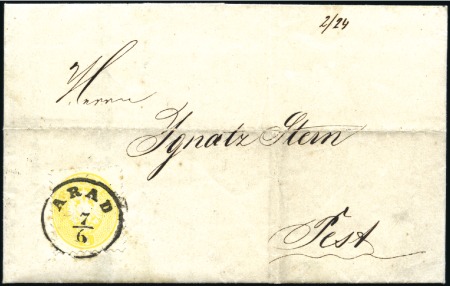 2/24
Herrn
Ignatz Stern
ARAD
7/6
Pest